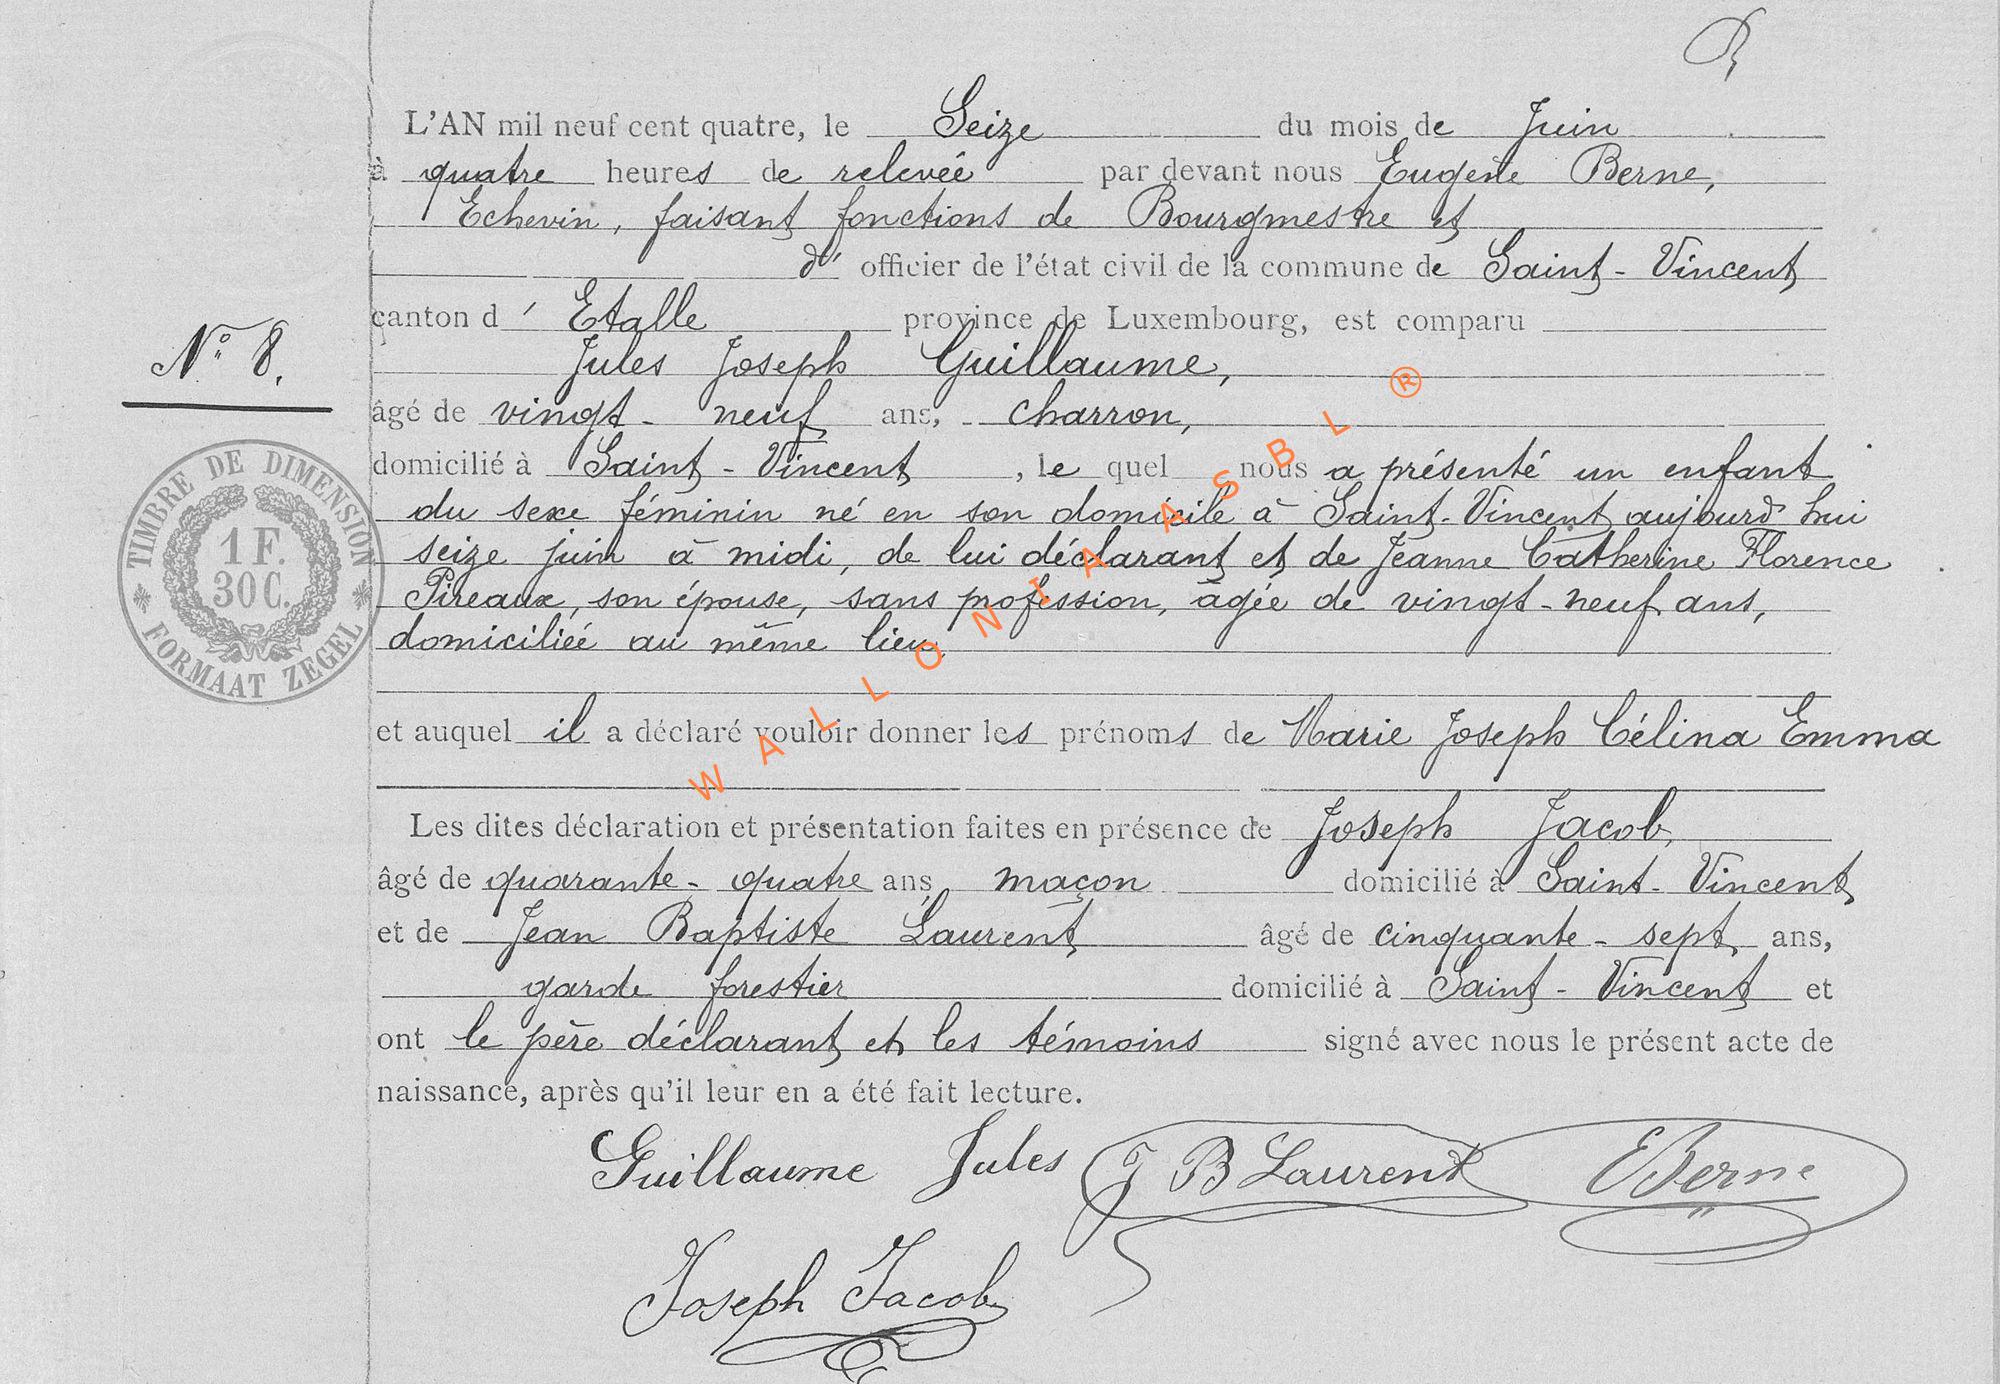 L'AN mil neuf cent quatre, le Seize du mois de Juin
à quatre heures de relevée par devant nous Eugène Berne,
Echevin, faisant fonctions de Bourgmestre et
d' officier de l'état civil de la commune de Saint-Vincent
canton d' Etalle province de Luxembourg, est comparu
Jules Joseph Guillaume,
N° 8.
âgé de vingt-neuf ans, charron,
domicilié à Saint-Vincent, le quel nous a présenté un enfant
du sexe féminin né en son domicile à Saint-Vincent aujourd'hui
seize juin à midi, de lui déclarant et de Jeanne Catherine Florence
Pireaux, son épouse, sans profession, âgée de vingt-neuf ans,
domiciliée au même lieu
et auquel il a déclaré vouloir donner les prénoms de Marie Joseph Célina Emma
Les dites déclaration et présentation faites en présence de Joseph Jacob,
âgé de quarante-quatre ans, maçon domicilié à Saint-Vincent
et de Jean Baptiste Laurent âgé de cinquante-sept ans,
garde forestier domicilié à Saint-Vincent et
ont le père déclarant et les témoins signé avec nous le présent acte de
naissance, après qu'il leur en a été fait lecture.
Guillaume Jules J B Laurent EBerne
Joseph Jacob
TIMBRE DE DIMENSION
1 F.
30 C.
FORMAAT ZEGEL
WALLONIA ASBL ®